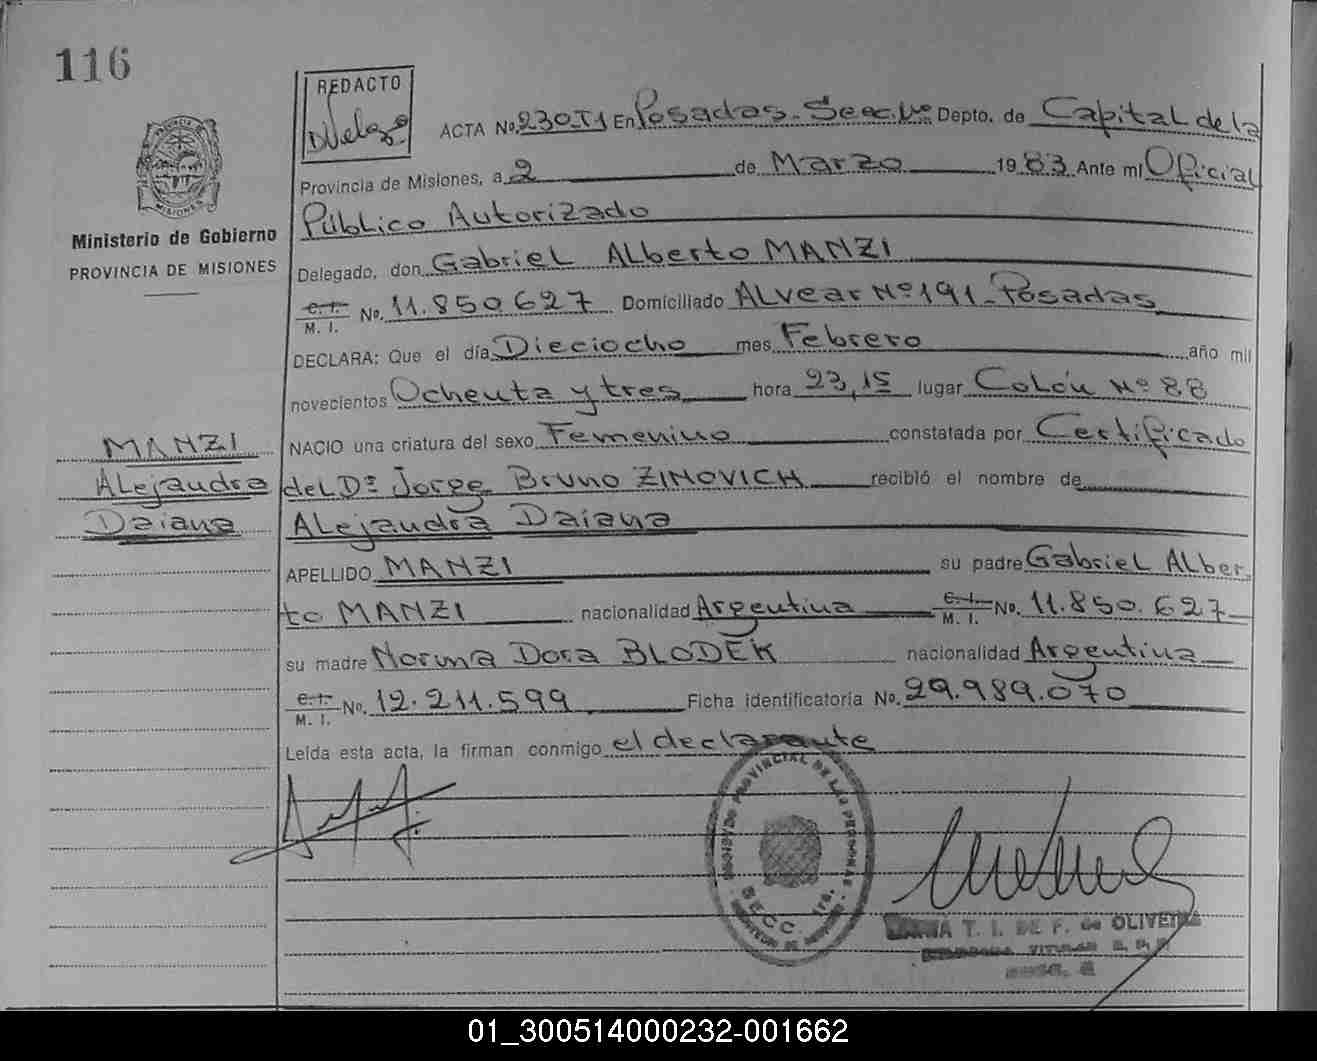 116
REDACTO
ACTA No. 230.T1 En Posadas - Secc. 1ª Depto. de Capital de la
Provincia de Misiones, a 2 de Marzo 1983 Ante mí Oficial
Público Autorizado
PROVINCIA DE MISIONES
Ministerio de Gobierno
PROVINCIA DE MISIONES
Delegado, don Gabriel Alberto MANZI
C. I. M. I. No. 11.850.627 Domiciliado Alvear Nº 191 - Posadas
DECLARA: Que el día Dieciocho mes Febrero año mil
novecientos Ochenta y tres hora 23,15 lugar Colón Nº 88
NACIO una criatura del sexo Femenino constatada por Certificado
MANZI
Alejandra
Daiana
del Dº Jorge Bruno ZINOVICH recibió el nombre de
Alejandra Daiana
APELLIDO MANZI su padre Gabriel Alber-
to MANZI nacionalidad Argentina C. I. M. I. No. 11.850.627
su madre Norma Dora BLODEK nacionalidad Argentina
C. I. M. I. No. 12.211.599 Ficha identificatoria No. 29.989.070
Leída esta acta, la firman conmigo el declarante
REGISTRO PROVINCIAL DE LAS PERSONAS
SECC. 1ra.
T. I. DE F. de OLIVEIRA
01_300514000232-001662